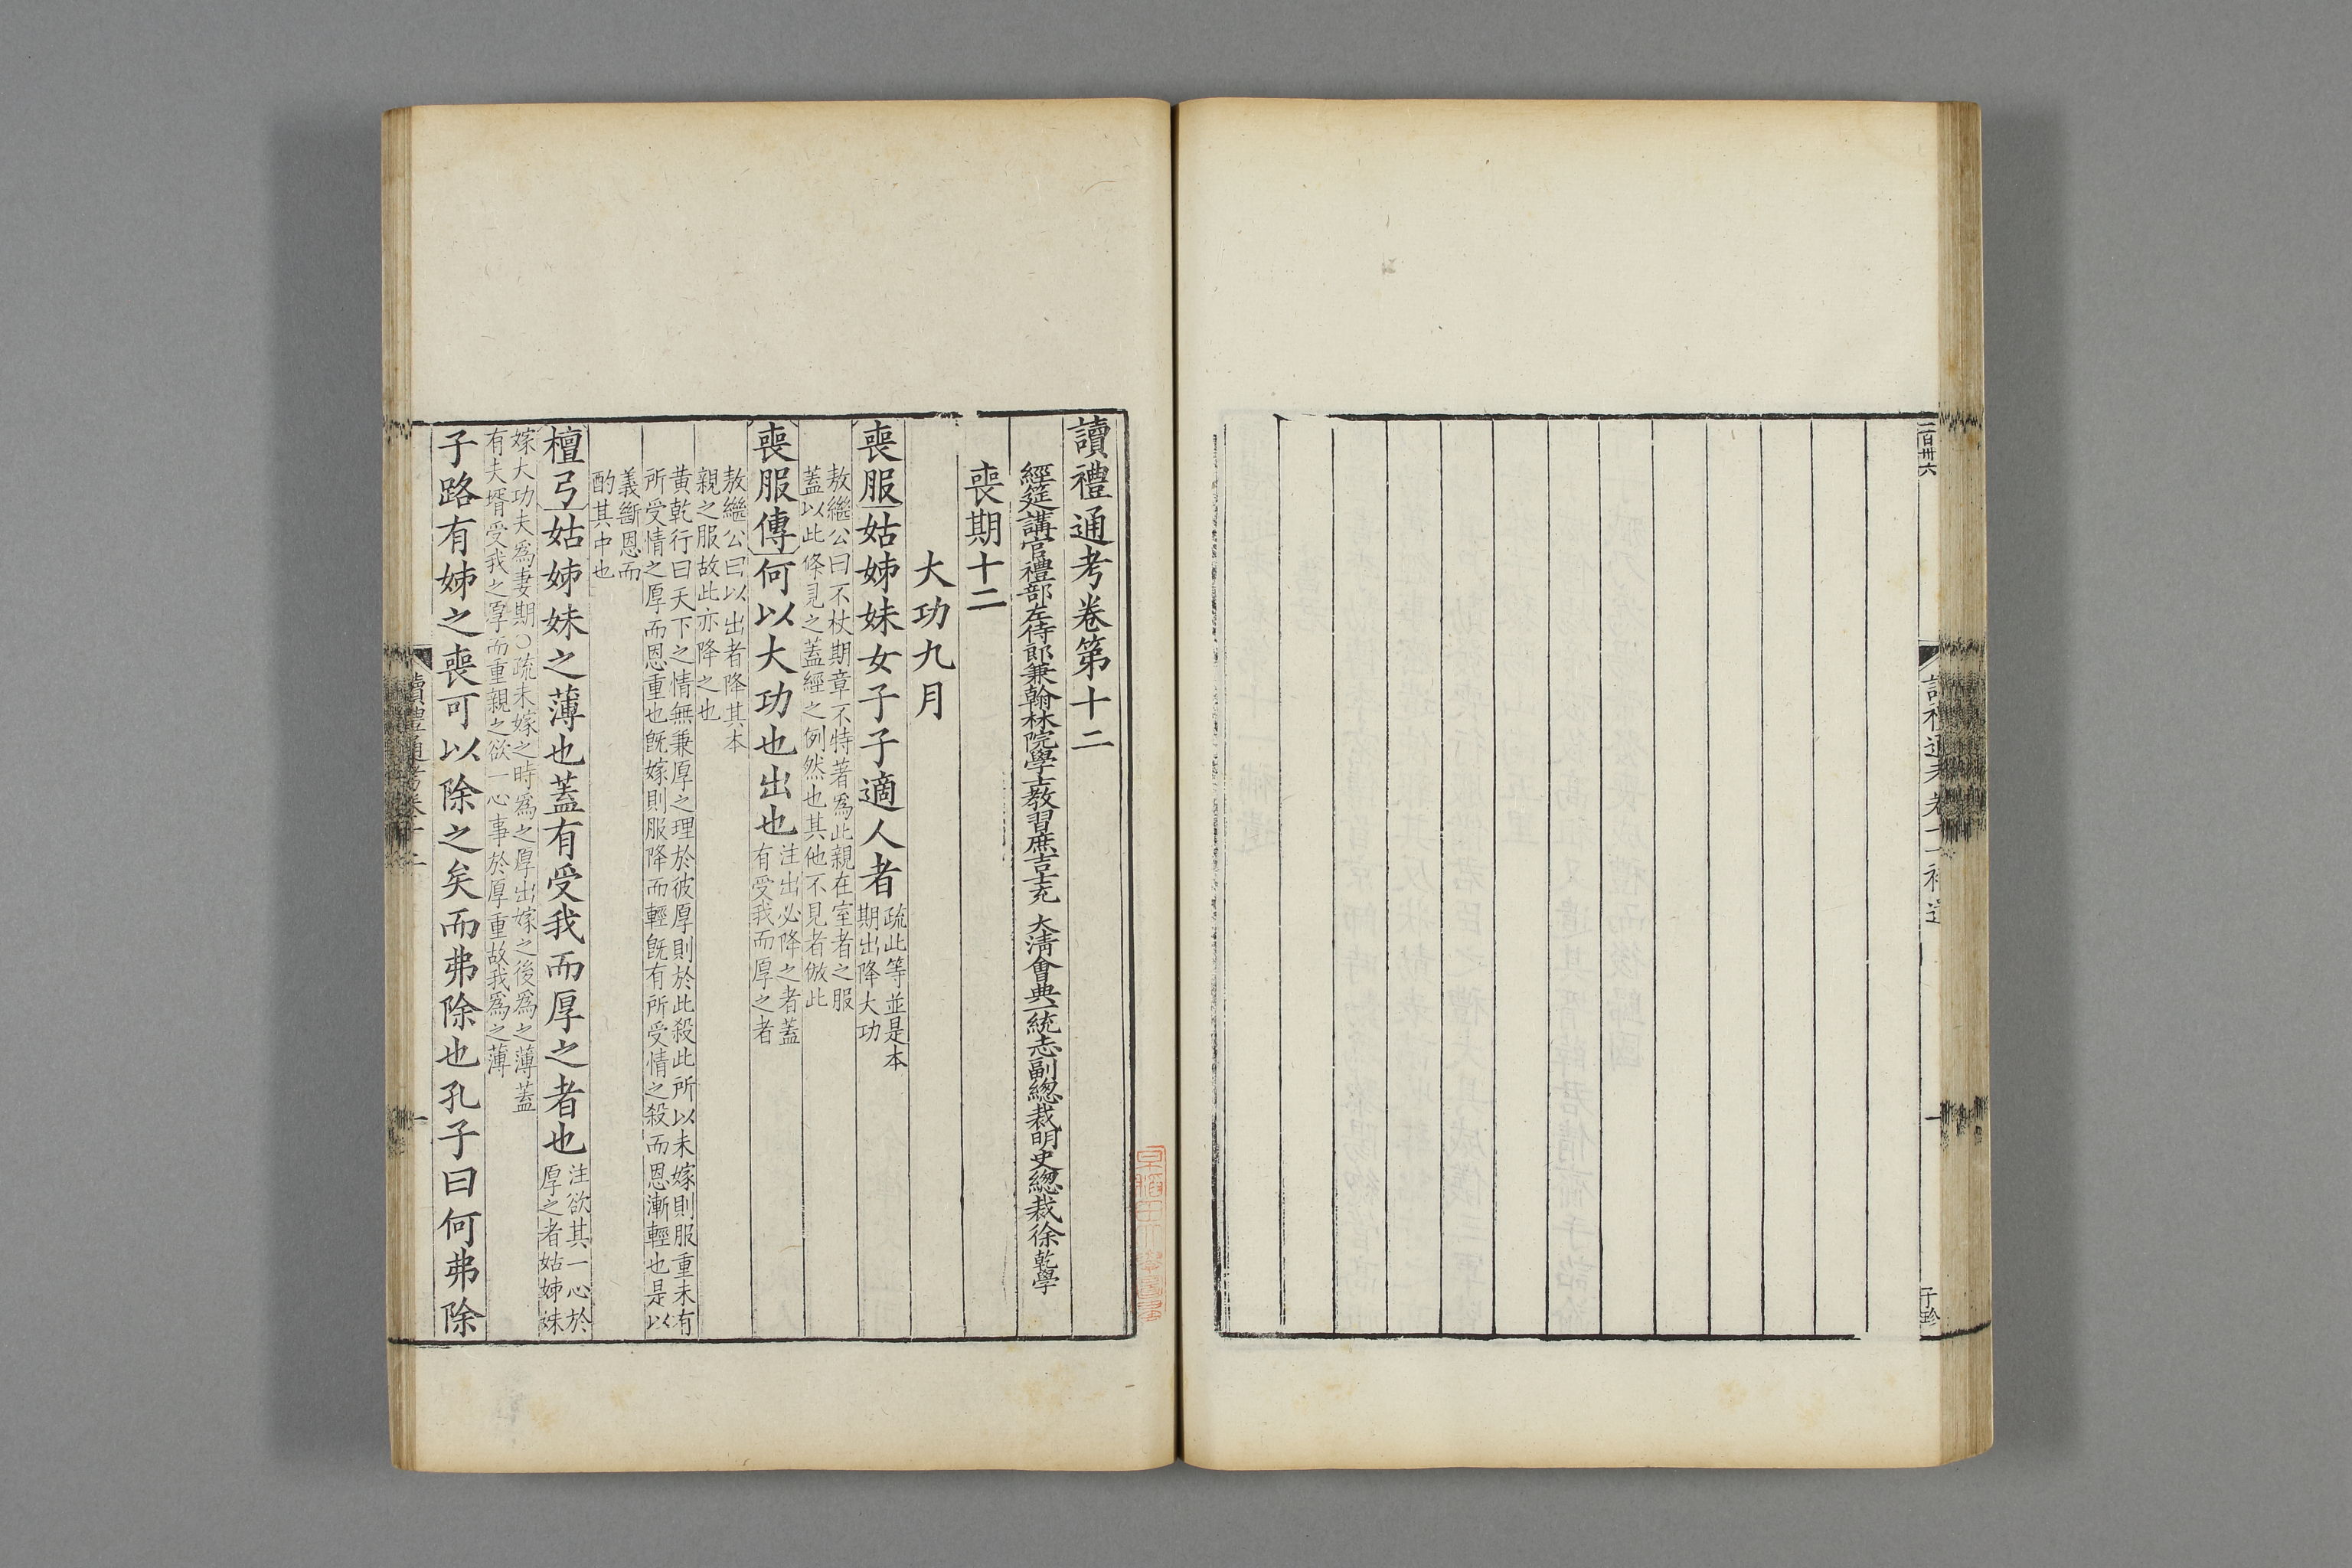 二百卅六
讀禮通考卷十一補遺
一
讀禮通考卷第十二
經筵講官禮部左侍郎兼翰林院學士教習庶吉士充 大清會典一統志副總裁明史總裁徐乾學
喪期十二
大功九月
喪服姑姊妹女子子適人者
疏此等並是本
期出降大功
敖繼公曰不杖期章不特著爲此親在室者之服
蓋以此條見之蓋經之例然也其他不見者倣此
喪服傳何以大功也出也
注出必降之者蓋
有受我而厚之者
敖繼公曰以出者降其本
親之服故此亦降之也
黃乾行曰天下之情無兼厚之理於彼厚則於此殺此所以未嫁則服重未有
所受情之厚而恩重也旣嫁則服降而輕旣有所受情之殺而恩漸輕也是以
義斷恩而
酌其中也
檀弓姑姊妹之薄也蓋有受我而厚之者也
注欲其一心於
厚之者姑姊妹
嫁大功夫爲妻期○疏未嫁之時爲之厚出嫁之後爲之薄蓋
有夫壻受我之厚而重親之欲一心事於厚重故我爲之薄
子路有姊之喪可以除之矣而弗除也孔子曰何弗除
讀禮通考卷十二
一